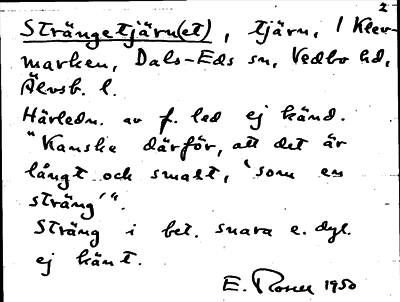 2
Strängetjärn(et), tjärn, i Klev-
marken, Dals-Eds sn, Vedbo hd,
Älvsb. l.
Härledn. av f. led ej känd.
"Kanske därför, att det är
långt och smalt, 'som en
sträng'".
Sträng i bet. snara e. dyl.
ej känt.
E. Rosell 1950